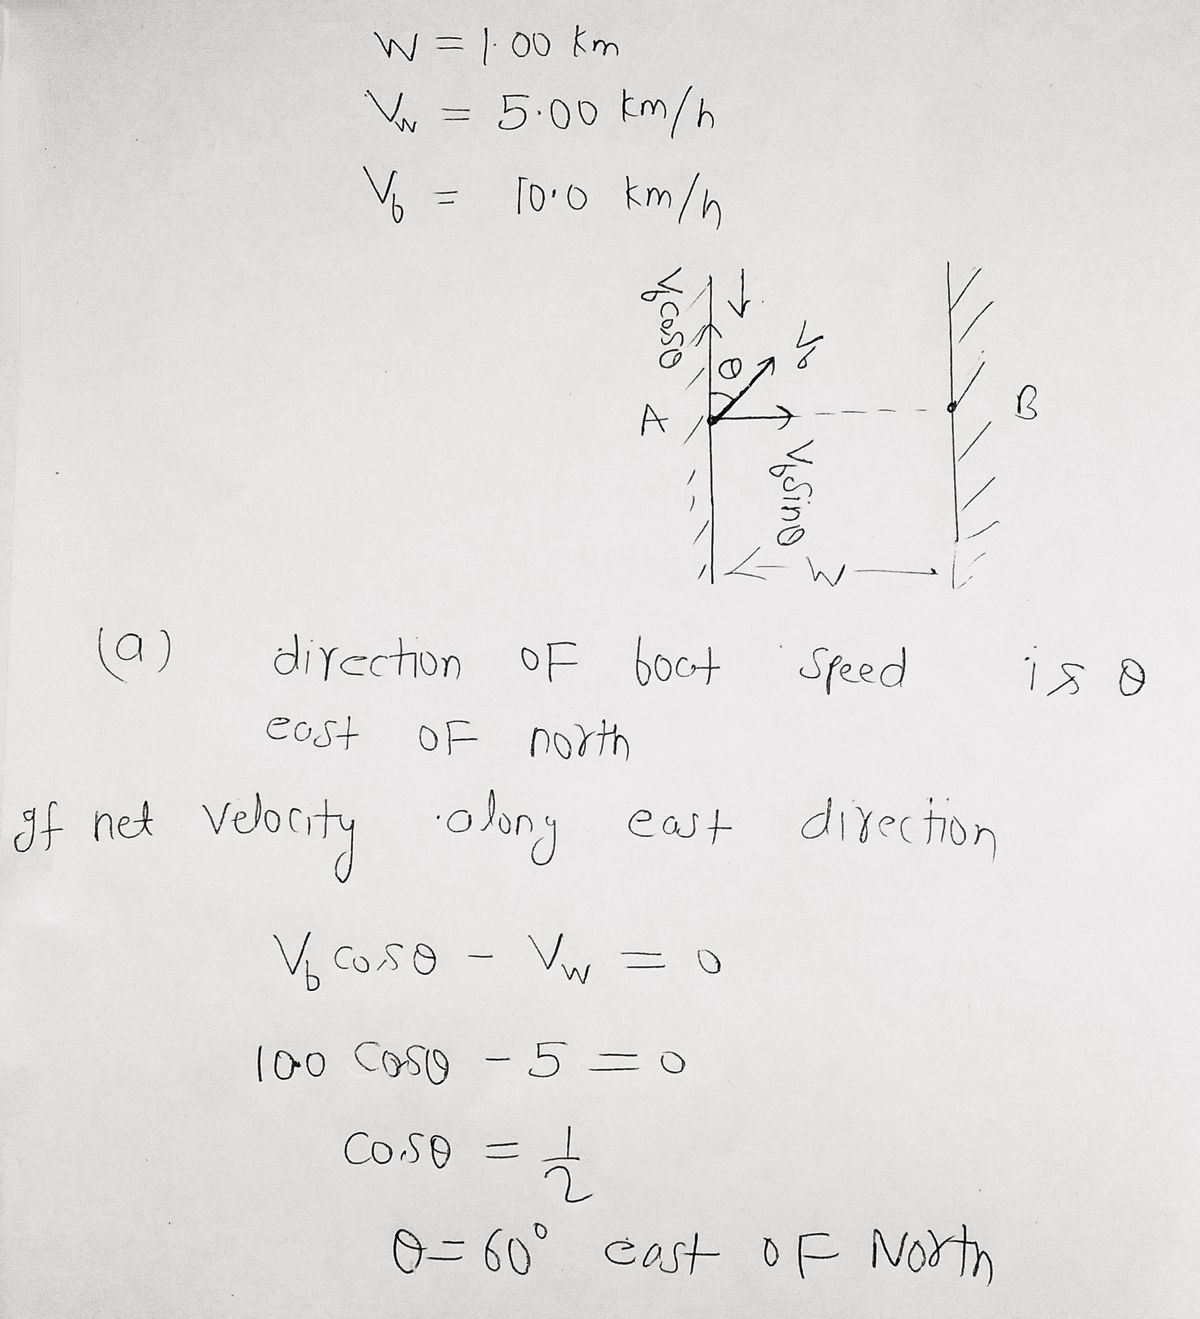 W = 1.00 km
Vw = 5.00 km/h
Vb = 10.0 km/h
Vb cosθ
θ
Vb
A
B
Vb sinθ
W
(a) direction OF boat speed is θ
east OF north
gf net velocity along east direction
Vb cosθ - Vw = 0
100 cosθ - 5 = 0
cosθ = 1/2
θ = 60° east OF North